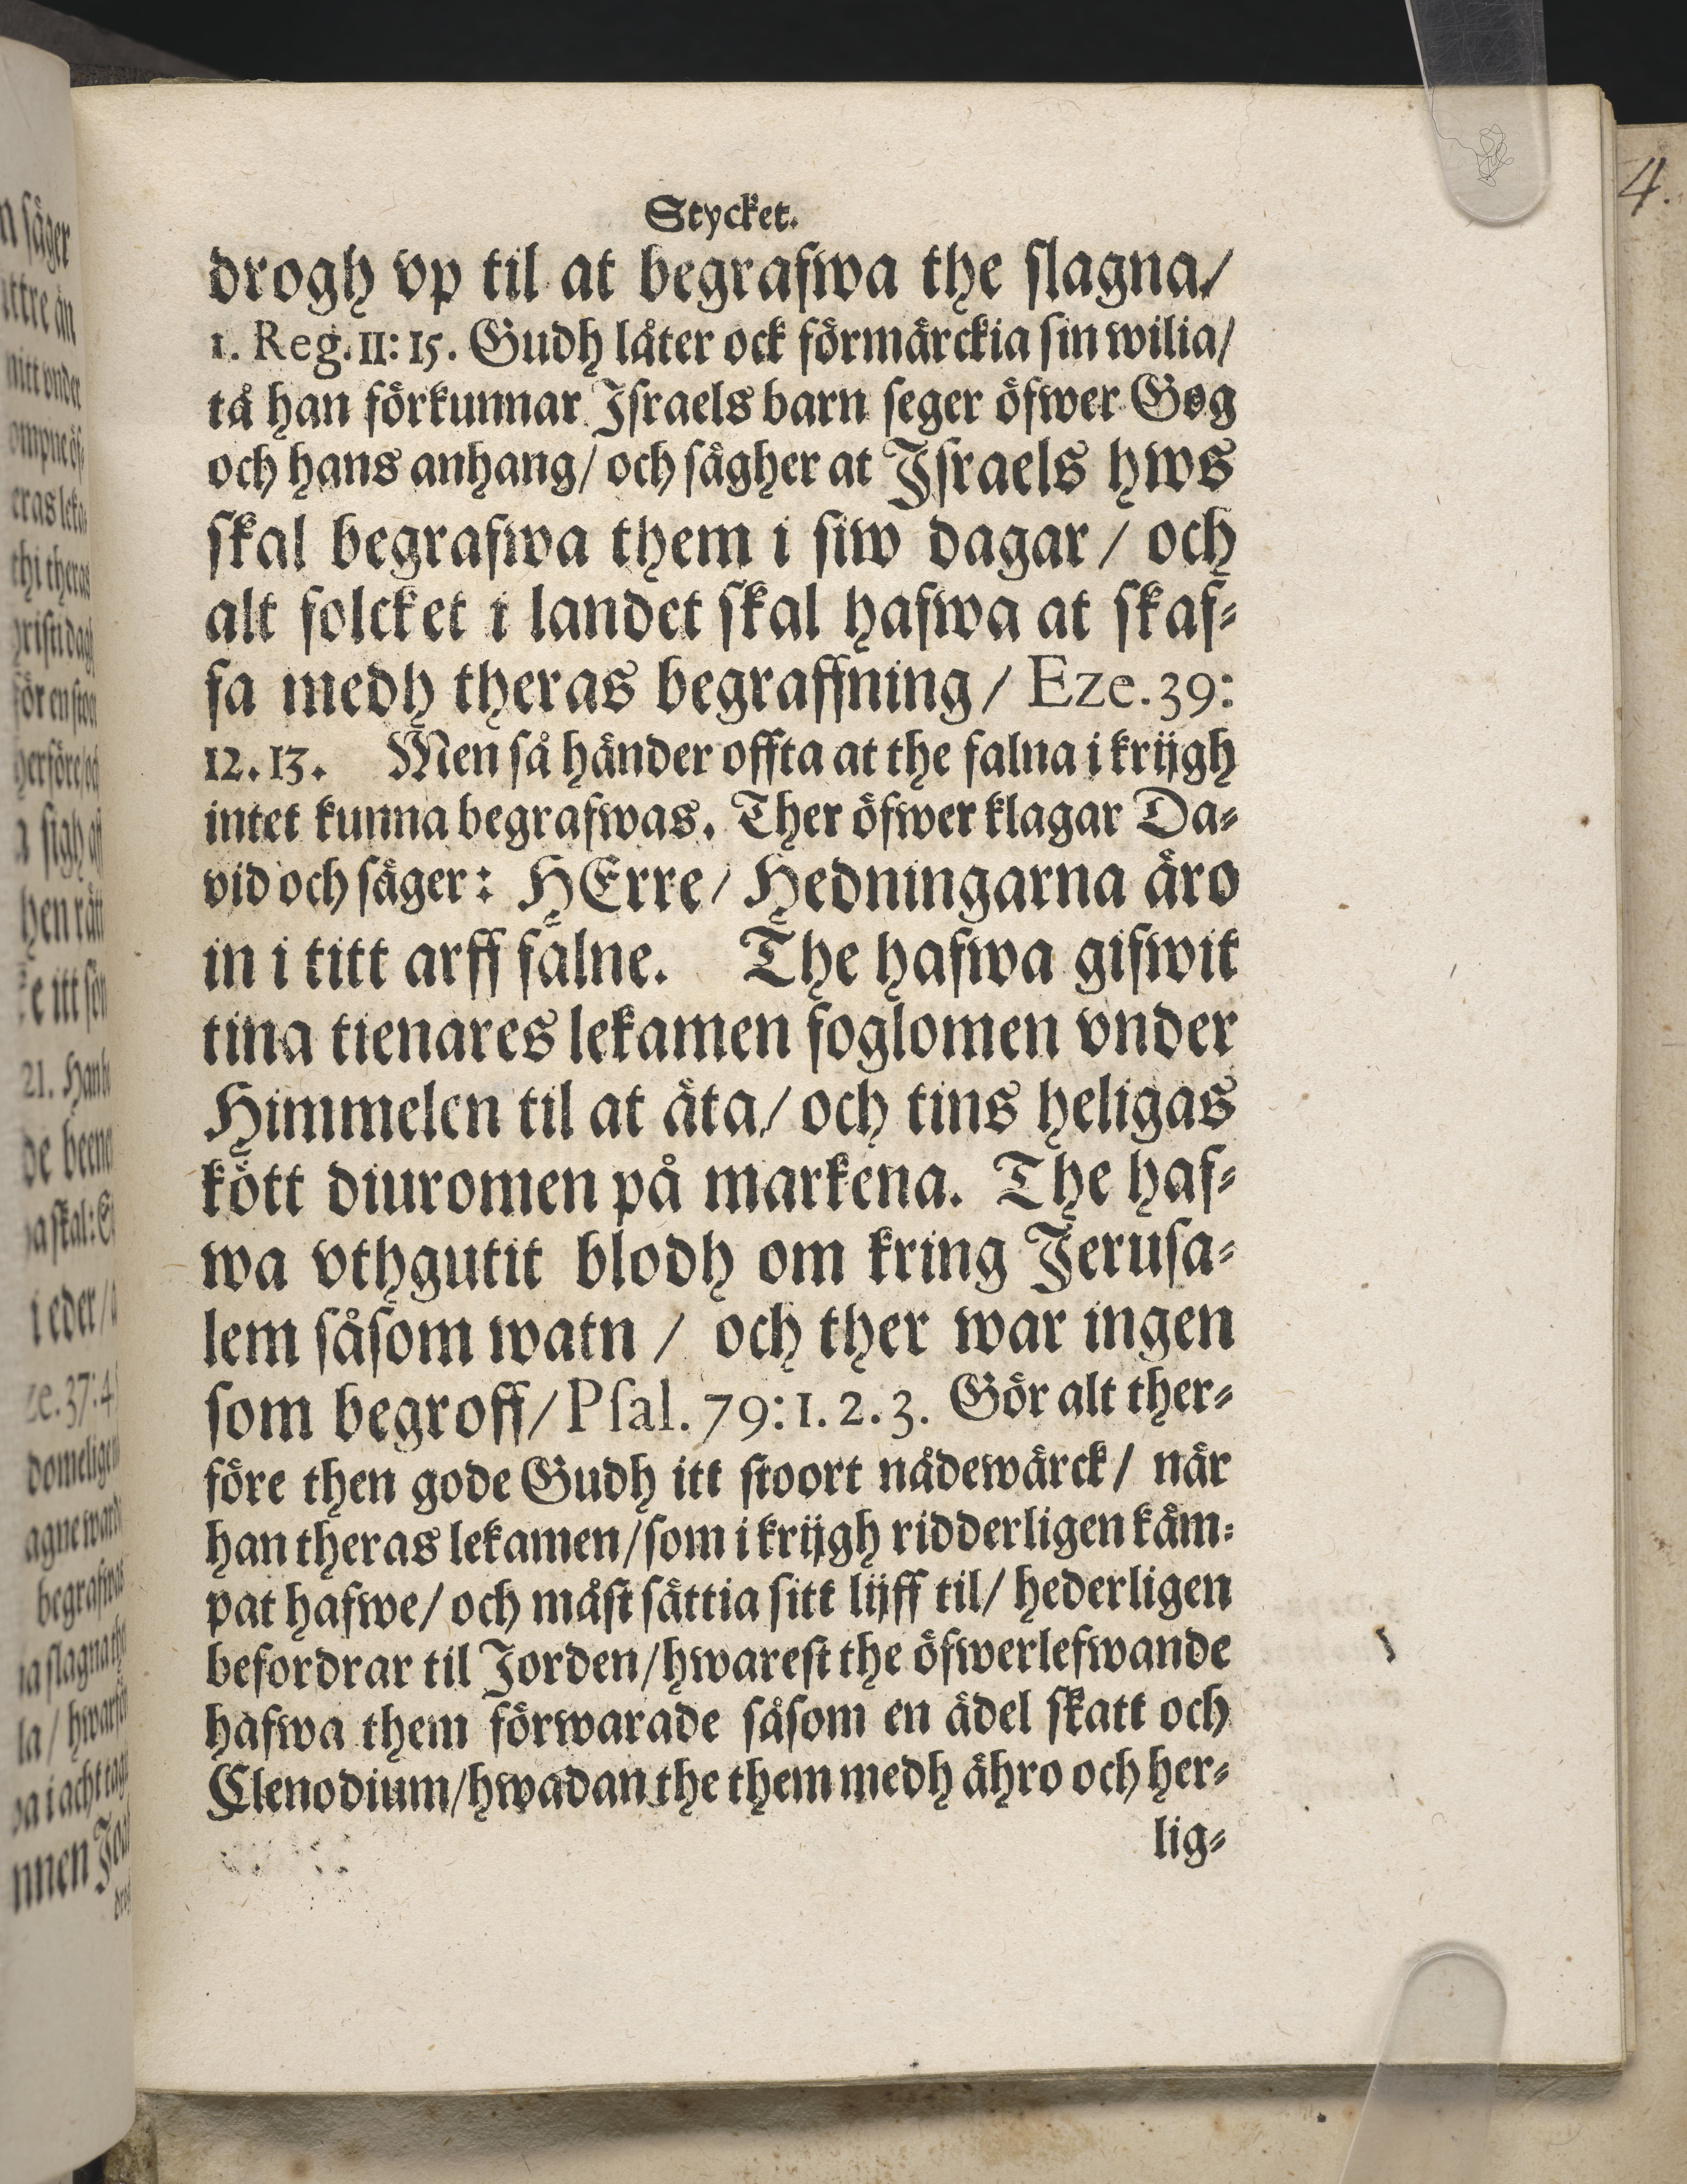 Stycket.
drogh vp til at begrafwa the slagna/
1. Reg. 11: 15. Gudh låter ock förmärckia sin wilia/
tå han förkunnar Israels barn seger öfwer Gog
och hans anhang/ och sägher at Israels hws
skal begrafwa them i siw dagar / och
alt folcket i landet skal hafwa at skaf⸗
fa medh theras begraffning / Eze. 39:
12. 13. Men så händer offta at the falna i krijgh
intet kunna begrafwas. Ther öfwer klagar Da⸗
vid och säger: HErre/ Hedningarna äro
in i titt arff fälne. The hafwa gifwit
tina tienares lekamen foglomen vnder
Himmelen til at äta/ och tins heligas
kött diuromen på markena. The haf⸗
wa vthgutit blodh om kring Jerusa⸗
lem såsom watn / och ther war ingen
som begroff/ Psal. 79: 1. 2. 3. Gör alt ther⸗
före then gode Gudh itt stoort nådewärck/ när
han theras lekamen/som i krijgh ridderligen käm⸗
pat hafwe/ och måst sättia sitt lijff til/ hederligen
befordrar til Jorden/hwarest the öfwerlefwande
hafwa them förwarade såsom en ädel skatt och
Clenodium/hwadan the them medh ähro och her⸗
lig⸗
4.